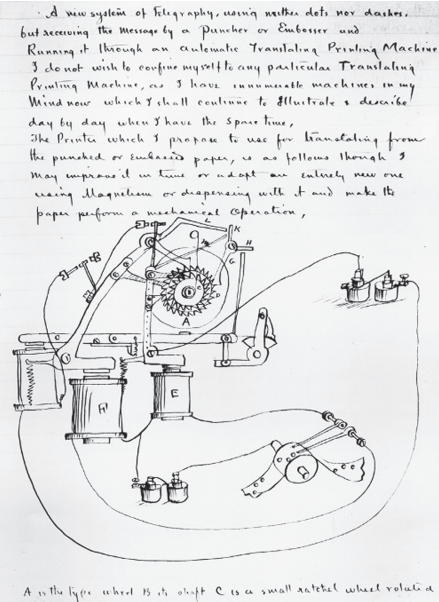 A new system of Telegraphy, using neither dots nor dashes.
but receiving the message by a Puncher or Embosser and
Running it through an automatic Translating Printing Machine
I do not wish to confine myself to any particular Translating
Printing Machine, as I have innumerable machines in my
Mind now which I shall continue to Illustrate & describe
day by day when I have the spare time,
The Printer which I propose to use for translating from
the punched or Embossed paper, is as follows though I
may improve it in time or adopt an entirely new one
using Magnetism or dispensing with it and make the
paper perform a mechanical operation,
L
K
H
G
C
D
A
E
A is the type wheel B its shaft C is a small ratchet wheel rotated